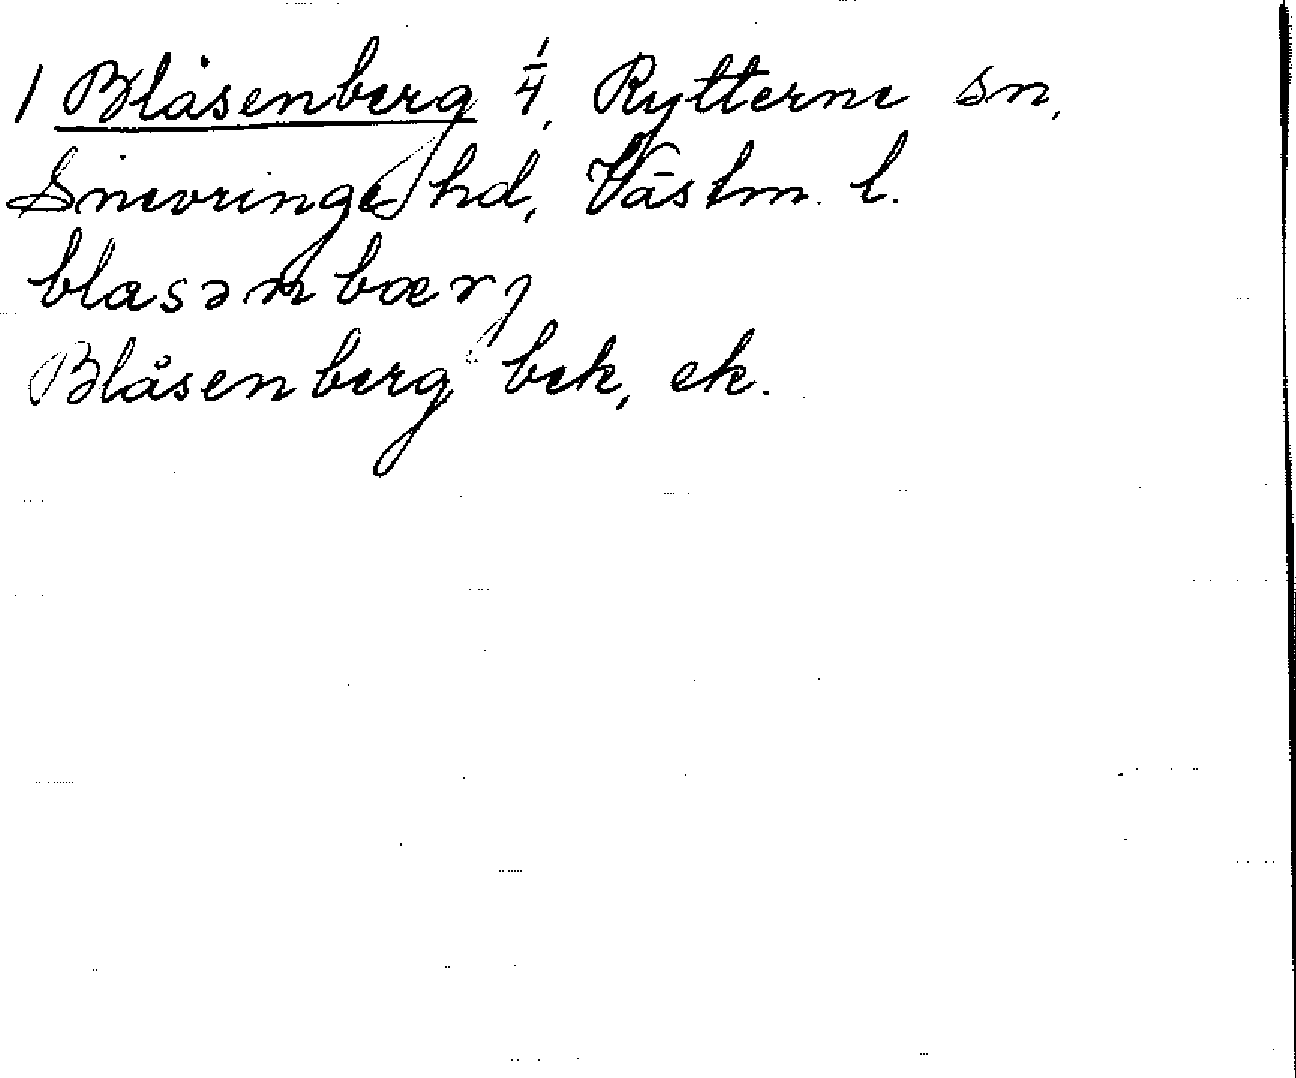 1 Blåsenberg 1/4, Rytterne sn,
Snevringe hd, Västm. l.
blasəmbærj
Blåsenberg bek, ek.